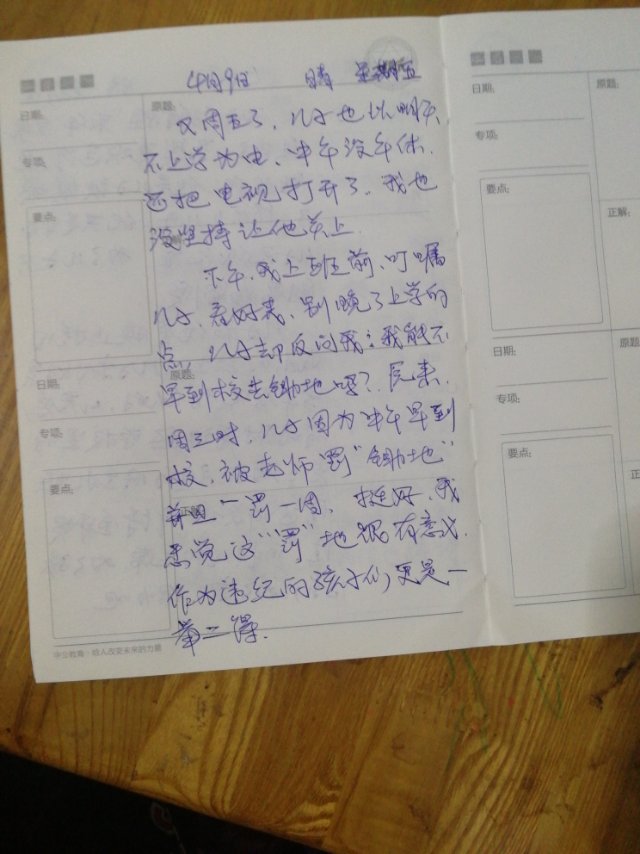 4月9日 晴 星期五
日期: 原题:
又周五了，儿子也以明天
不上学为由，中午没午休，
专项:
还把电视打开了，我也
要点:
没坚持让他关上.
下午，我上班前，叮嘱
儿子，看好表，别晚了上学的
点，儿子却反问我：我能不
日期: 原题:
早到校去锄地吗？原来，
专项:
周三时，儿子因为中午早到
校，被老师罚“锄地”
要点: 正解:
并且一罚一周，挺好，我
感觉这“罚”地很有意义.
作为违纪的孩子们，更是一
举二得.
中公教育·给人改变未来的力量
日期: 原题:
专项:
要点: 正解:
日期: 原题
专项:
要点: 正